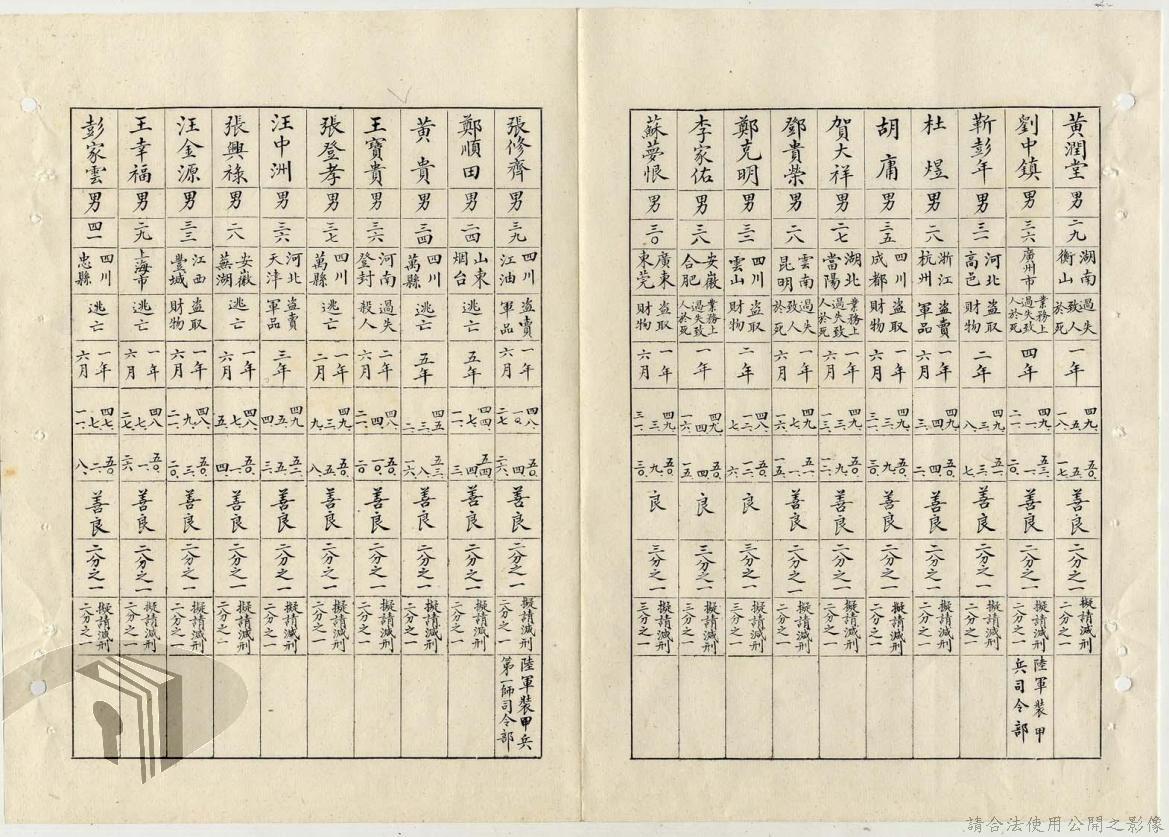 黃潤堂 男 二九 湖南衡山 過失致人於死 一年 四九.五.一八. 五○.五.一七. 善良 二分之一 擬請減刑二分之一
劉中鎮 男 三六 廣州市 業務上過失致人於死 四年 四九.一.二一. 五三.一.二○. 善良 二分之一 擬請減刑二分之一 陸軍裝甲兵司令部
靳彭年 男 三一 河北高邑 盜取財物 二年 四九.三.八. 五一.三.七. 善良 二分之一 擬請減刑二分之一
杜煜 男 二八 浙江杭州 盜賣軍品 一年六月 善良 二分之一 擬請減刑二分之一
胡庸 男 三五 四川成都 盜取財物 一年六月 四九.三.三一. 五○.九.三○. 善良 二分之一 擬請減刑二分之一
賀大祥 男 二七 湖北當陽 業務上過失致人於死 一年六月 四九.三.一三. 五○.九.一二. 善良 二分之一 擬請減刑二分之一
鄧貴榮 男 二八 雲南昆明 過失致人於死 一年六月 四九.七.二. 五一.一.一. 善良 二分之一 擬請減刑二分之一
鄭克明 男 三二 四川雲山 盜取財物 二年 良 三分之一 擬請減刑三分之一
李家佑 男 三八 安徽合肥 業務上過失致人於死 一年 四九.四.一六. 五○.四.一五. 良 三分之一 擬請減刑三分之一
蘇夢恨 男 三○ 廣東東莞 盜取財物 一年六月 四九.三.三一. 五○.九.三○. 良 三分之一 擬請減刑三分之一
張修齊 男 三九 四川江油 盜賣軍品 一年六月 四八.一○.二七. 五○.四.二六. 善良 二分之一 擬請減刑二分之一 陸軍裝甲兵第一師司令部
鄭順田 男 二四 山東烟台 逃亡 五年 善良 二分之一 擬請減刑二分之一
黃貴 男 三四 四川萬縣 逃亡 五年 善良 二分之一 擬請減刑二分之一
王寶貴 男 三六 河南登封 過失殺人 二年六月 四八.四.二一. 五○.一○.二○. 善良 二分之一 擬請減刑二分之一
張登孝 男 三七 四川萬縣 逃亡 一年二月 四九.三.九. 五○.五.八. 善良 二分之一 擬請減刑二分之一
汪中洲 男 三六 河北天津 盜賣軍品 三年 四九.五.四. 五二.五.三. 善良 二分之一 擬請減刑二分之一
張興祿 男 二八 安徽蕪湖 逃亡 一年六月 四八.七.五. 五○.一.四. 善良 二分之一 擬請減刑二分之一
汪金源 男 三三 江西豐城 盜取財物 一年六月 四八.九.二一. 五○.三.二○. 善良 二分之一 擬請減刑二分之一
王幸福 男 二九 上海市 逃亡 一年六月 四八.七.二七. 五○.一.二六. 善良 二分之一 擬請減刑二分之一
彭家雲 男 四一 四川忠縣 逃亡 一年六月 四七.七.一一. 五○.二.八. 善良 二分之一 擬請減刑二分之一
請合法使用公開之影像